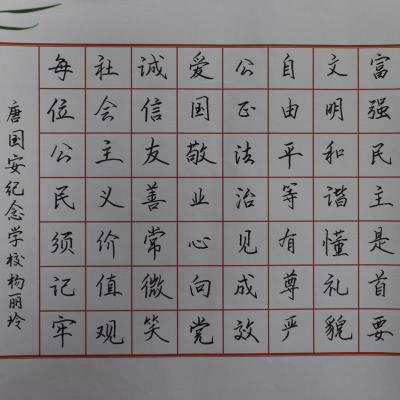 富强民主是首要
文明和谐懂礼貌
自由平等有尊严
公正法治见成效
爱国敬业心向党
诚信友善常微笑
社会主义价值观
每位公民须记牢
唐国安纪念学校杨丽玲